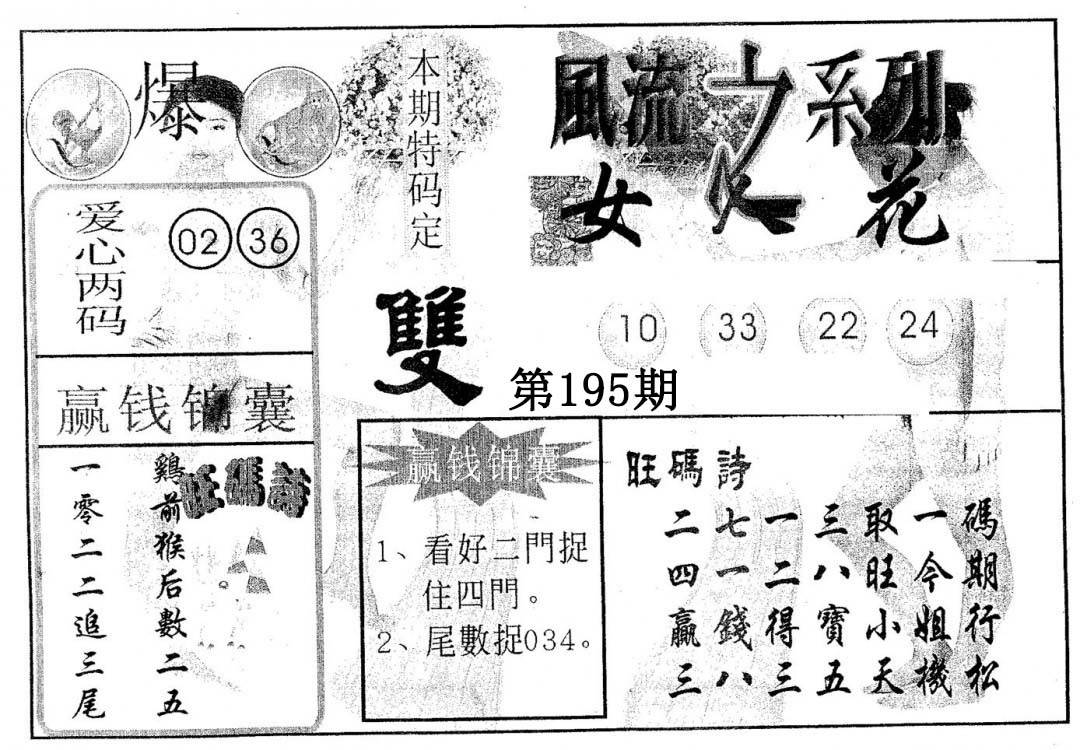 爆
本期特码定
風流之系列
女人花
爱心两码
02 36
雙
10 33 22 24
第195期
赢钱锦囊
旺碼詩
鷄前猴后數二五
一零二二追三尾
赢钱锦囊
1、看好二門捉
住四門。
2、尾數捉034。
旺碼詩
碼期行松
一今姐機
取旺小天
三八寶五
一二得三
七一錢八
二四贏三